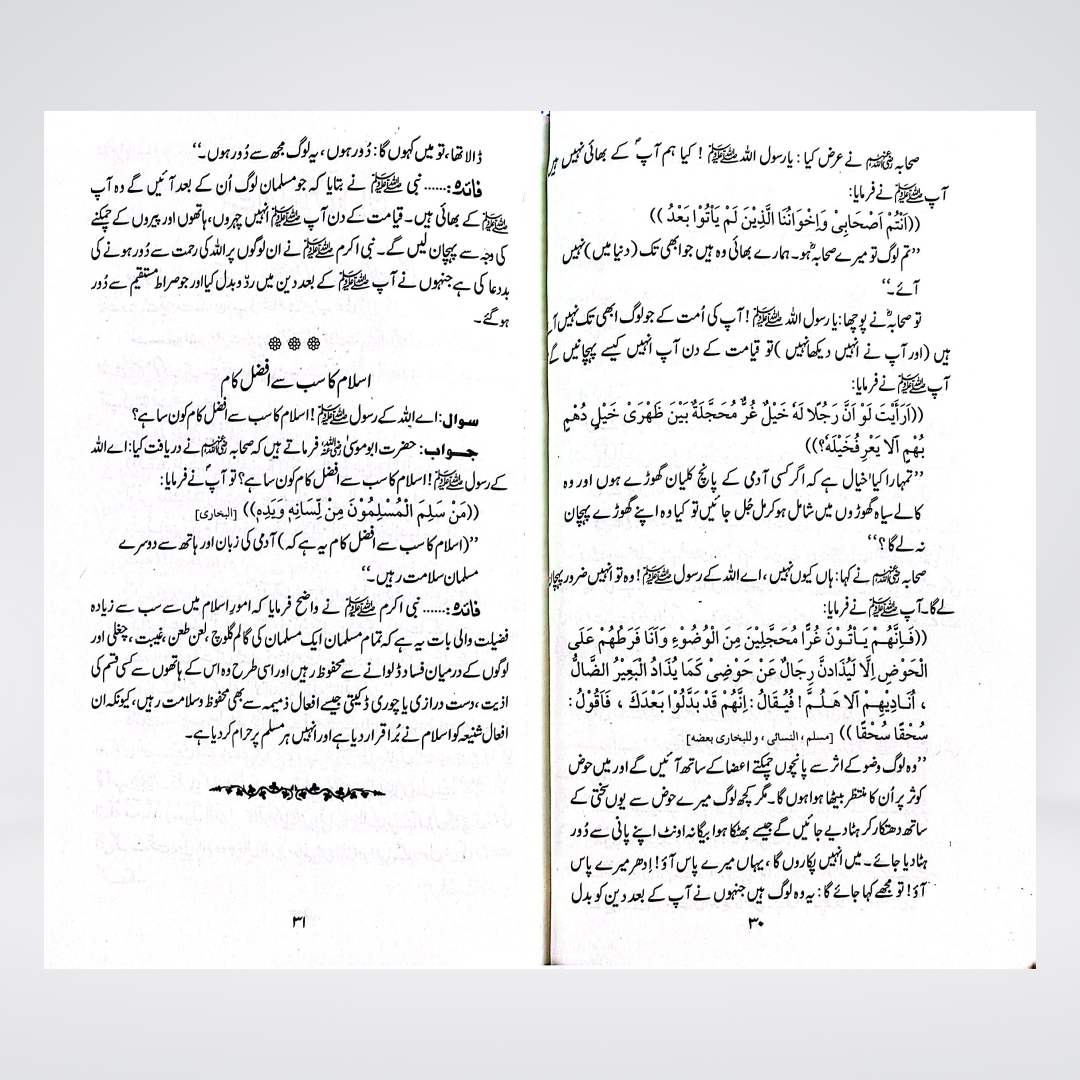 صحابہ رضی اللہ عنہم نے عرض کیا : یا رسول اللہ ﷺ ! کیا ہم آپؐ کے بھائی نہیں ہیں
آپ ﷺ نے فرمایا:
((اَنْتُمْ اَصْحَابِىْ وَاِخْوَانُنَا الَّذِيْنَ لَمْ يَاْتُوْا بَعْدُ))
’’تم لوگ تو میرے صحابہؓ ہو۔ ہمارے بھائی وہ ہیں جو ابھی تک (دنیا میں) نہیں
آئے۔‘‘
تو صحابہؓ نے پوچھا: یا رسول اللہ ﷺ ! آپ کی اُمت کے جو لوگ ابھی تک نہیں آئے
ہیں (اور آپ نے انہیں دیکھا نہیں) تو قیامت کے دن آپ انہیں کیسے پہچانیں گے
آپ ﷺ نے فرمایا:
((اَرَاَيْتَ لَوْ اَنَّ رَجُلًا لَهٗ خَيْلٌ غُرٌّ مُحَجَّلَةٌ بَيْنَ ظَهْرَىْ خَيْلٍ دُهْمٍ
بُهْمٍ اَلَا يَعْرِفُ خَيْلَهٗ؟))
’’تمہارا کیا خیال ہے کہ اگر کسی آدمی کے پانچ کلیان گھوڑے ہوں اور وہ
کالے سیاہ گھوڑوں میں شامل ہو کر مل جُل جائیں تو کیا وہ اپنے گھوڑے پہچان
نہ لے گا ؟‘‘
صحابہ رضی اللہ عنہم نے کہا: ہاں کیوں نہیں، اے اللہ کے رسول ﷺ ! وہ تو انہیں ضرور پہچان
لے گا۔ آپ ﷺ نے فرمایا:
((فَاِنَّهُمْ يَاْتُوْنَ غُرًّا مُحَجَّلِيْنَ مِنَ الْوُضُوْءِ وَاَنَا فَرَطُهُمْ عَلَى
الْحَوْضِ اِلَّا لَيُذَادنَّ رِجَالٌ عَنْ حَوْضِىْ كَمَا يُذَادُ الْبَعِيْرُ الضَّالُّ
، اُنَادِيْهِمْ اَلَا هَلُمَّ ! فُيُقَالُ : اِنَّهُمْ قَدْ بَدَّلُوْا بَعْدَكَ ، فَاَقُوْلُ :
سُحْقًا سُحْقًا)) [مسلم ، النسائى ، وللبخارى بعضه]
’’وہ لوگ وضو کے اثر سے پانچوں چمکتے اعضا کے ساتھ آئیں گے اور میں حوض
کوثر پر اُن کا منتظر بیٹھا ہوا ہوں گا۔ مگر کچھ لوگ میرے حوض سے یوں سختی کے
ساتھ دھتکار کر ہٹا دیے جائیں گے جیسے بھٹکا ہوا بیگانہ اونٹ اپنے پانی سے دُور
ہٹا دیا جائے۔ میں انہیں پکاروں گا ، یہاں میرے پاس آؤ! اِدھر میرے پاس
آؤ! تو مجھے کہا جائے گا: یہ وہ لوگ ہیں جنہوں نے آپ کے بعد دین کو بدل
۳۰
ڈالا تھا، تو میں کہوں گا: دُور ہوں، یہ لوگ مجھ سے دُور ہوں۔‘‘
فائدہ:...... نبی ﷺ نے بتایا کہ جو مسلمان لوگ اُن کے بعد آئیں گے وہ آپ
ﷺ کے بھائی ہیں۔ قیامت کے دن آپ ﷺ انہیں چہروں، ہاتھوں اور پیروں کے چمکنے
کی وجہ سے پہچان لیں گے۔ نبی اکرم ﷺ نے ان لوگوں پر اللہ کی رحمت سے دُور ہونے کی
بددعا کی ہے جنہوں نے آپ ﷺ کے بعد دین میں ردّ و بدل کیا اور جو صراط مستقیم سے دُور
ہو گئے۔
اسلام کا سب سے افضل کام
سوال: اے اللہ کے رسول ﷺ ! اسلام کا سب سے افضل کام کون سا ہے؟
جواب: حضرت ابو موسیٰ رضی اللہ عنہ فرماتے ہیں کہ صحابہ رضی اللہ عنہم نے دریافت کیا: اے اللہ
کے رسول ﷺ ! اسلام کا سب سے افضل کام کون سا ہے؟ تو آپؐ نے فرمایا:
((مَنْ سَلِمَ الْمُسْلِمُوْنَ مِنْ لِّسَانِهٖ وَيَدِهٖ)) [البخارى]
’’(اسلام کا سب سے افضل کام یہ ہے کہ) آدمی کی زبان اور ہاتھ سے دوسرے
مسلمان سلامت رہیں۔‘‘
فائدہ:...... نبی اکرم ﷺ نے واضح فرمایا کہ امورِ اسلام میں سے سب سے زیادہ
فضیلت والی بات یہ ہے کہ تمام مسلمان ایک مسلمان کی گالم گلوچ، لعن طعن، غیبت، چغلی اور
لوگوں کے درمیان فساد ڈلوانے سے محفوظ رہیں اور اسی طرح وہ اس کے ہاتھوں سے کسی قسم کی
اذیت، دست درازی یا چوری ڈکیتی جیسے افعال ذمیمہ سے بھی محفوظ و سلامت رہیں، کیونکہ ان
افعال شنیعہ کو اسلام نے بُرا قرار دیا ہے اور انہیں ہر مسلم پر حرام کر دیا ہے۔
۳۱